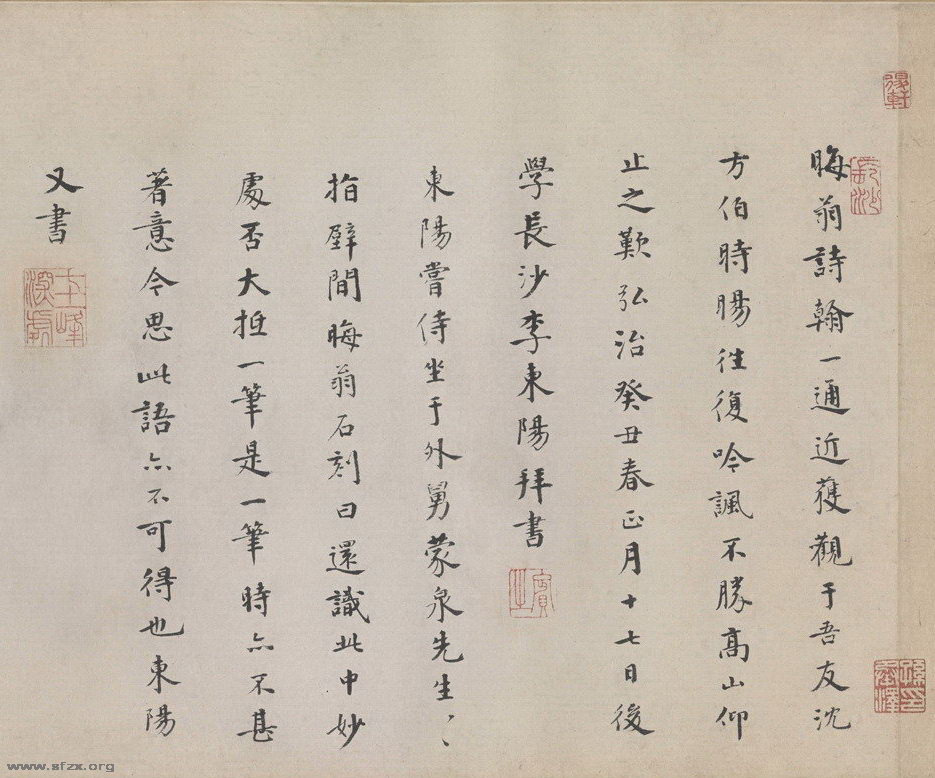 晦翁詩翰一通近獲觀于吾友沈
方伯時暘徃復吟諷不勝髙山仰
止之歎弘治癸丑春正月十七日後
學長沙李東陽拜書
東陽嘗侍坐于外舅蒙泉先生、、
指壁間晦翁石刻曰還識此中妙
處否大抵一筆是一筆時亦不甚
著意今思此語亦不可得也東陽
又書
長沙
賓之
www.sfzx.org